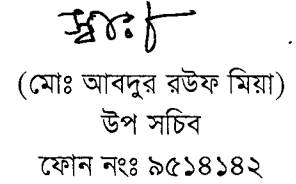 স্বাঃ/-
(মোঃ আবদুর রউফ মিয়া)
উপ সচিব
ফোন নংঃ ৯৫১৪১৪২